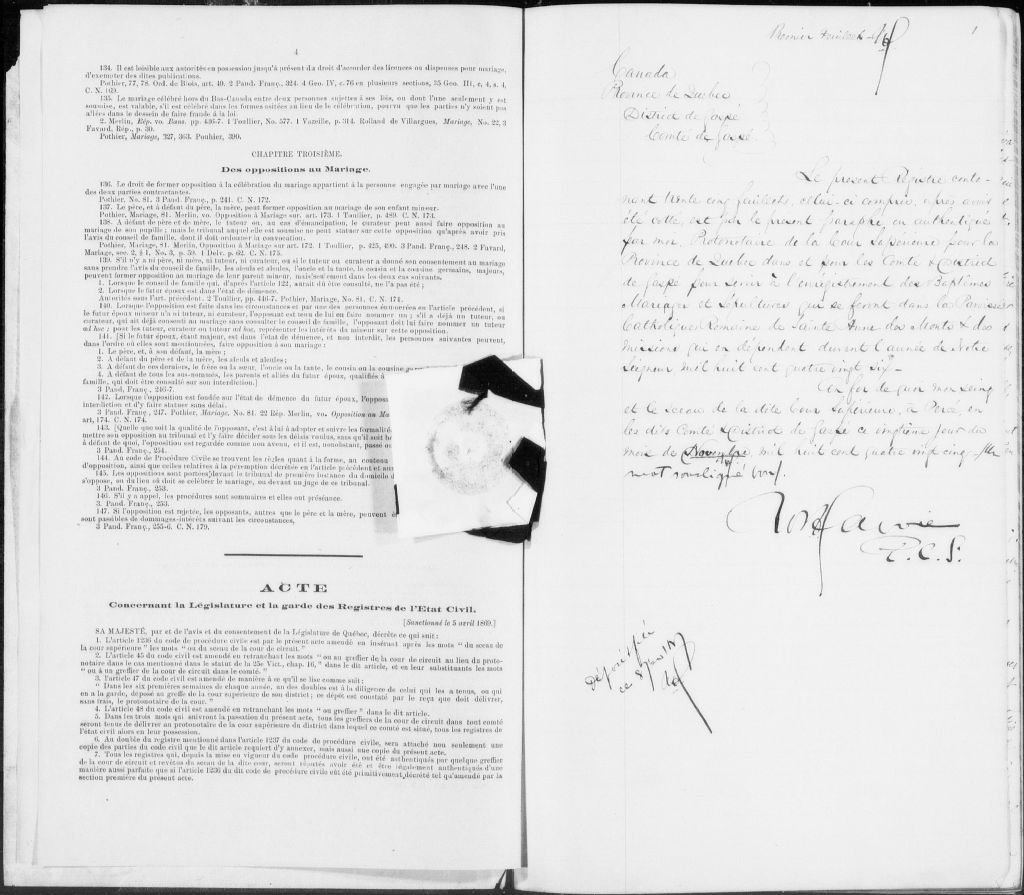 4
134. Il est loisible aux autorités en possession jusqu'à présent du droit d'accorder des licences ou dispenses pour mariage,
d'exempter des dites publications.
Pothier, 77, 78. Ord. de Blois, art. 40. 2 Pand. Franç., 324. 4 Geo. IV, c. 76 en plusieurs sections, 35 Geo. III, c. 4, s. 4,
C. N. 169.
135. Le mariage célébré hors du Bas-Canada entre deux personnes sujettes à ses lois, ou dont l'une seulement y est
soumise, est valable, s'il est célébré dans les formes usitées au lieu de la célébration, pourvu que les parties n'y soient pas
allées dans le dessein de faire fraude à la loi.
2. Merlin, Rép. vo. Bans. pp. 436-7. 1 Toullier, No. 577. 1 Vazeille, p. 314. Rolland de Villargues, Mariage, No. 22, 3
Favard, Rép., p. 30.
Pothier, Mariage, 327, 363. Pouhier, 390.
CHAPITRE TROISIÈME.
Des oppositions au Mariage.
136. Le droit de former opposition à la célébration du mariage appartient à la personne engagée par mariage avec l'une
des deux parties contractantes.
Pothier. No. 81. 3 Pand. Franç., p. 241. C. N. 172.
137. Le père, et à défaut du père, la mère, peut former opposition au mariage de son enfant mineur.
Pothier, Mariage, 81. Merlin, vo. Opposition à Mariage sur. art. 173. 1 Toullier, p. 489. C. N. 173.
138. A défaut de père et de mère, le tuteur ou, au cas d'émancipation, le curateur peut aussi faire opposition au
mariage de son pupille ; mais le tribunal auquel elle est soumise ne peut statuer sur cette opposition qu'après avoir pris
l'avis du conseil de famille, dont il doit ordonner la convocation.
Pothier, Mariage, 81. Merlin, Opposition à Mariage sur art. 172. 1 Toullier, p. 425, 490. 3 Pand. Franç., 248. 2 Favard,
Mariage, sec. 2, § 1, No. 3, p. 59. 1 Delv. p. 62. C. N. 175.
139. S'il n'y a ni père, ni mère, ni tuteur, ni curateur, ou si le tuteur ou curateur a donné son consentement au mariage
sans prendre l'avis du conseil de famille, les aïeuls et aïeules, l'oncle et la tante, le cousin et la cousine germains, majeurs,
peuvent former opposition au mariage de leur parent mineur, mais seulement dans les deux cas suivants.
1. Lorsque le conseil de famille qui, d'après l'article 122, aurait dû être consulté, ne l'a pas été ;
2. Lorsque le futur époux est dans l'état de démence.
Autorités sous l'art. précédent. 2 Toullier, pp. 446-7. Pothier, Mariage, No. 81. C. N. 174.
140. Lorsque l'opposition est faite dans les circonstances et par une des personnes énoncées en l'article précédent, si
le futur époux mineur n'a ni tuteur, ni curateur, l'opposant est tenu de lui en faire nommer un ; s'il a déjà un tuteur, ou
curateur, qui ait déjà consenti au mariage sans consulter le conseil de famille, l'opposant doit lui faire nommer un tuteur
ad hoc ; pour les tuteur, curateur ou tuteur ad hoc, représenter les intérêts du mineur sur cette opposition.
141. [Si le futur époux, étant majeur, est dans l'état de démence, et non interdit, les personnes suivantes peuvent,
dans l'ordre où elles sont mentionnées, faire opposition à son mariage :
1. Le père, et, à son défaut, la mère ;
2. A défaut du père et de la mère, les aïeuls et aïeules ;
3. A défaut de ces derniers, le frère ou la sœur, l'oncle ou la tante, le cousin ou la cousine
4. A défaut de tous les sus-nommés, les parents et alliés du futur époux, qualifiés à
famille, qui doit être consulté sur son interdiction.]
3 Pand. Franç., 246-7.
142. Lorsque l'opposition est fondée sur l'état de démence du futur époux, l'opposa
interdiction et d'y faire statuer sans délai.
3 Pand. Franç., 247. Pothier, Mariage, No. 81. 22 Rép. Merlin, vo. Opposition au Ma
art, 174. C. N. 174.
143. [Quelle que soit la qualité de l'opposant, c'est à lui à adopter et suivre les formalité
mettre son opposition au tribunal et d'y faire décider sous les délais voulus, sans qu'il soit be
à défaut de quoi, l'opposition est regardée comme non avenue, et il est, nonobstant, passé o
3 Pand. Franç., 254.
144. Au code de Procédure Civile se trouvent les règles quant à la forme, au contenu
d'opposition, ainsi que celles relatives à la péremption décrétée en l'article précédent et au
145. Les oppositions sont portées devant le tribunal de première instance du domicile d
s'oppose, ou du lieu où doit se célébrer le mariage, ou devant un juge de ce tribunal.
3 Pand. Franç., 253.
146. S'il y a appel, les procédures sont sommaires et elles ont préséance.
3. Pand. Franç., 253.
147. Si l'opposition est rejetée, les opposants, autres que le père et la mère, peuvent ê
sont passibles de dommages-intérêts suivant les circonstances,
3 Pand. Franç., 255-6. C. N. 179.
ACTE
Concernant la Législature et la garde des Registres de l'Etat Civil.
[Sanctionné le 5 avril 1869.]
SA MAJESTÉ, par et de l'avis et du consentement de la Législature de Québec, décrète ce qui suit :
1. L'article 1236 du code de procédure civile est par le présent acte amendé en insérant après les mots " du sceau de
la cour supérieure " les mots " ou du sceau de la cour de circuit. "
2. L'article 45 du code civil est amendé en retranchant les mots " ou au greffier de la cour de circuit au lieu du proto-
notaire dans le cas mentionné dans le statut de la 25e Vict., chap. 16, " dans le dit article, et en leur substituants les mots
" ou à un greffier de la cour de circuit dans le comté. "
3. l'article 47 du code civil est amendé de manière à ce qu'il se lise comme suit :
" Dans les six premières semaines de chaque année, un des doubles est à la diligence de celui qui les a tenus, ou qui
en a la garde, déposé au greffe de la cour supérieure de son district ; ce dépôt est constaté par le reçu que doit délivrer,
sans frais, le protonotaire de la cour. "
4. L'article 48 du code civil est amendé en retranchant les mots " ou greffier " dans le dit article.
5. Dans les trois mois qui suivront la passation du présent acte, tous les greffiers de la cour de circuit dans tout comté
seront tenus de délivrer au protonotaire de la cour supérieure du district dans lequel ce comté est situé, tous les registres de
l'état civil alors en leur possession.
6. Au double du registre mentionné dans l'article 1237 du code de procédure civile, sera attaché non seulement une
copie des parties du code civil que le dit article requiert d'y annexer, mais aussi une copie du présent acte.
7. Tous les registres qui, depuis la mise en vigueur du code procédure civile, ont été authentiqués par quelque greffier
de la cour de circuit et revêtus du sceau de la dite cour, seront réputés avoir été et être légalement authentiqués d'une
manière aussi parfaite que si l'article 1236 du dit code de procédure civile eût été primitivement décrété tel qu'amendé par la
section première du présent acte.
Premier feuillet
1
Canada
Province de Quebec
District de Gaspé
Comté de Gaspé.
Le present Registre conte-
nant trente cinq feuillets, celui-ci compris, après avoir
été cotté, est par le present paraphé, en authentiqué
par moi, Protonotaire de la Cour Supérieure pour la
Province de Quebec dans et pour les Comté & District
de Gaspé pour servir à l'enregistrement des Baptêmes
Mariages et Sépultures qui se feront dans la Paroisse
Catholique Romaine de Sainte Anne des Monts & des
missions qui en dépendent durant l'année de Notre
Seigneur mil huit cent quatre vingt six -
En foi de quoi mon seing
et le sceau de la dite Cour Supérieure, à Percé, en
les dits Comté & District de Gaspé ce vingtième jour du
mois de Novembre mil huit cent quatre vingt cinq -
mot souligné bon
P. C. S.
déposé